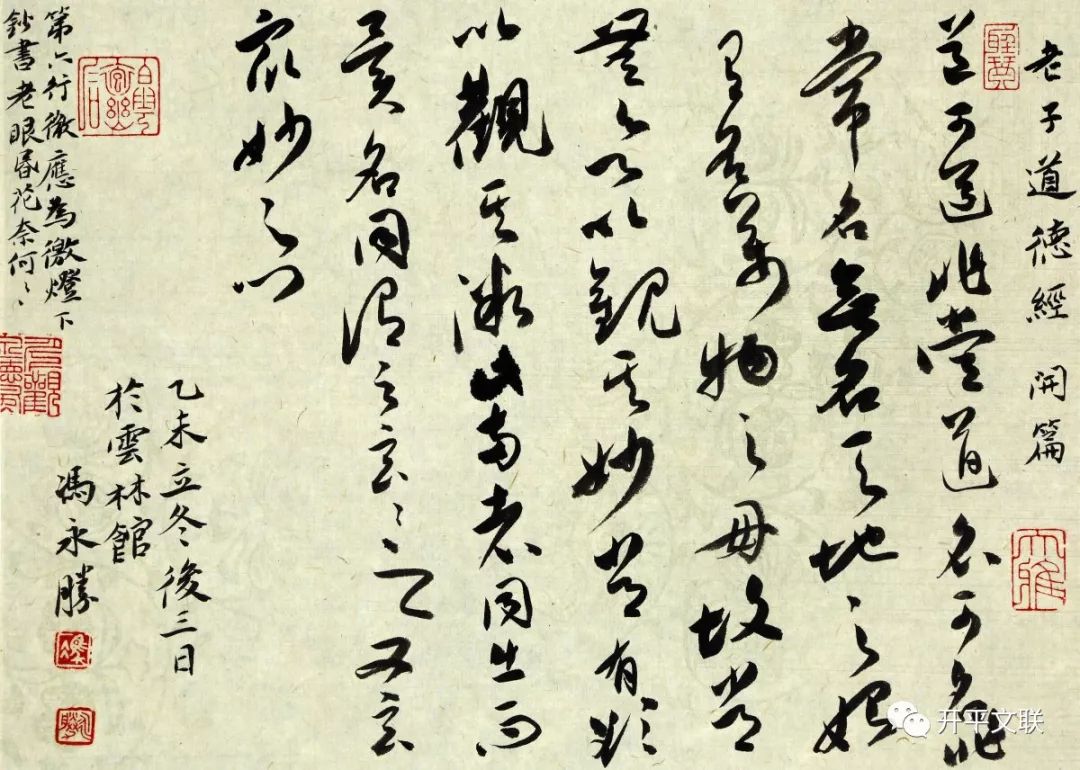 老子道德經 開篇
道可道非常道名可名非
常名無名天地之始
有名萬物之母故常
無欲以觀其妙常有欲
以觀其激此兩者同出而
異名同謂之玄〻之又玄
眾妙之門
第六行徵應為徼燈下
鈔書老眼昏花奈何〻
乙未立冬後三日
於雲林館
馮永勝
开平文联